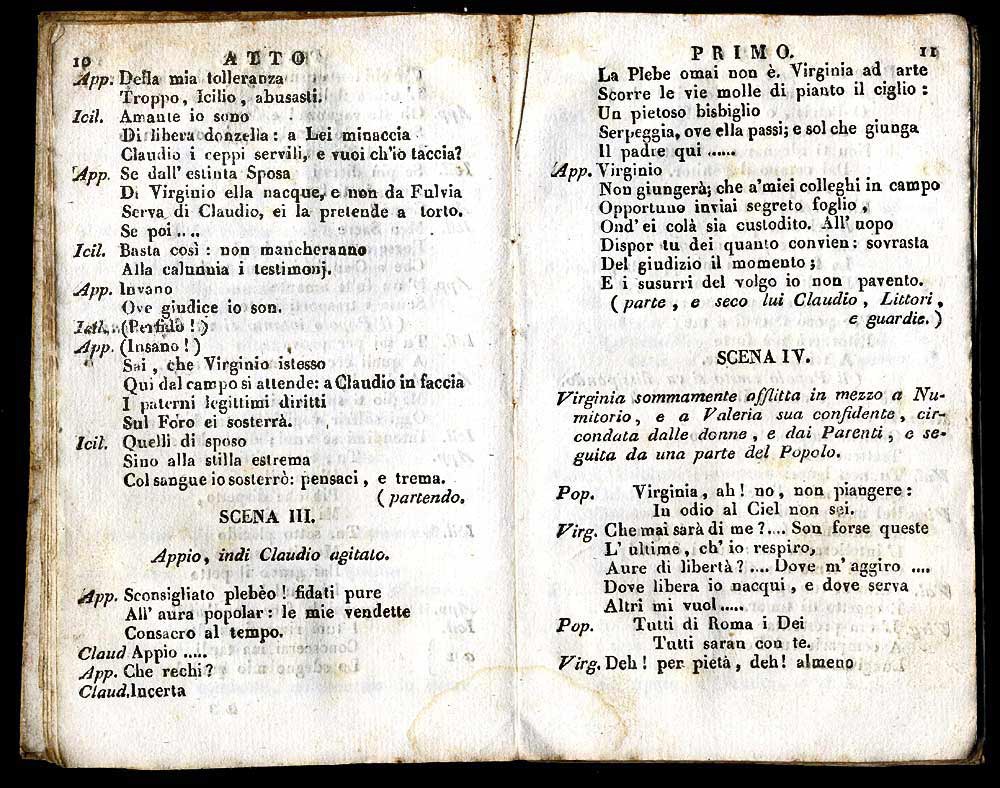 10 ATTO
App. Della mia tolleranza
Troppo, Icilio, abusasti.
Icil. Amante io sono
Di libera donzella: a Lei minaccia
Claudio i ceppi servili, e vuoi ch'io taccia?
App. Se dall' estinta Sposa
Di Virginio ella nacque, e non da Fulvia
Serva di Claudio, ei la pretende a torto.
Se poi....
Icil. Basta così: non mancheranno
Alla calunnia i testimonj.
App. Invano
Ove giudice io son.
Icil. (Perfido!)
App. (Insano!)
Sai, che Virginio istesso
Qui dal campo si attende: a Claudio in faccia
I paterni legittimi diritti
Sul Foro ei sosterrà.
Icil. Quelli di sposo
Sino alla stilla estrema
Col sangue io sosterrò: pensaci, e trema.
(partendo.
SCENA III.
Appio, indi Claudio agitato.
App. Sconsigliato plebèo! fidati pure
All' aura popolar: le mie vendette
Consacro al tempo.
Claud Appio.....
App. Che rechi?
Claud. Incerta
PRIMO. 11
La Plebe omai non è. Virginia ad arte
Scorre le vie molle di pianto il ciglio:
Un pietoso bisbiglio
Serpeggia, ove ella passi; e sol che giunga
Il padre qui......
App. Virginio
Non giungerà; che a'miei colleghi in campo
Opportuno inviai segreto foglio,
Ond' ei colà sia custodito. All' uopo
Dispor tu dei quanto convien: sovrasta
Del giudizio il momento;
E i susurri del volgo io non pavento.
(parte, e seco lui Claudio, Littori,
e guardie.)
SCENA IV.
Virginia sommamente afflitta in mezzo a Nu-
mitorio, e a Valeria sua confidente, cir-
condata dalle donne, e dai Parenti, e se-
guita da una parte del Popolo.
Pop. Virginia, ah! no, non piangere:
In odio al Ciel non sei.
Virg. Che mai sarà di me?.... Son forse queste
L' ultime, ch' io respiro,
Aure di libertà?.... Dove m' aggiro....
Dove libera io nacqui, e dove serva
Altri mi vuol.....
Pop. Tutti di Roma i Dei
Tutti saran con te.
Virg. Deh! per pietà, deh! almeno